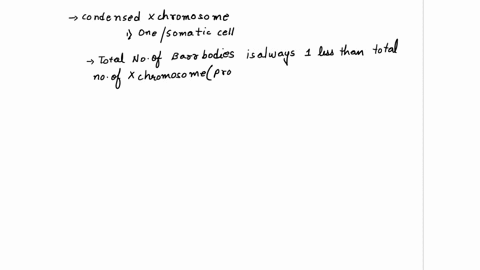 → condensed X chromosome
↳ One / somatic cell
→ Total No. of Barr bodies is always 1 less than total
no. of X chromosome (pro